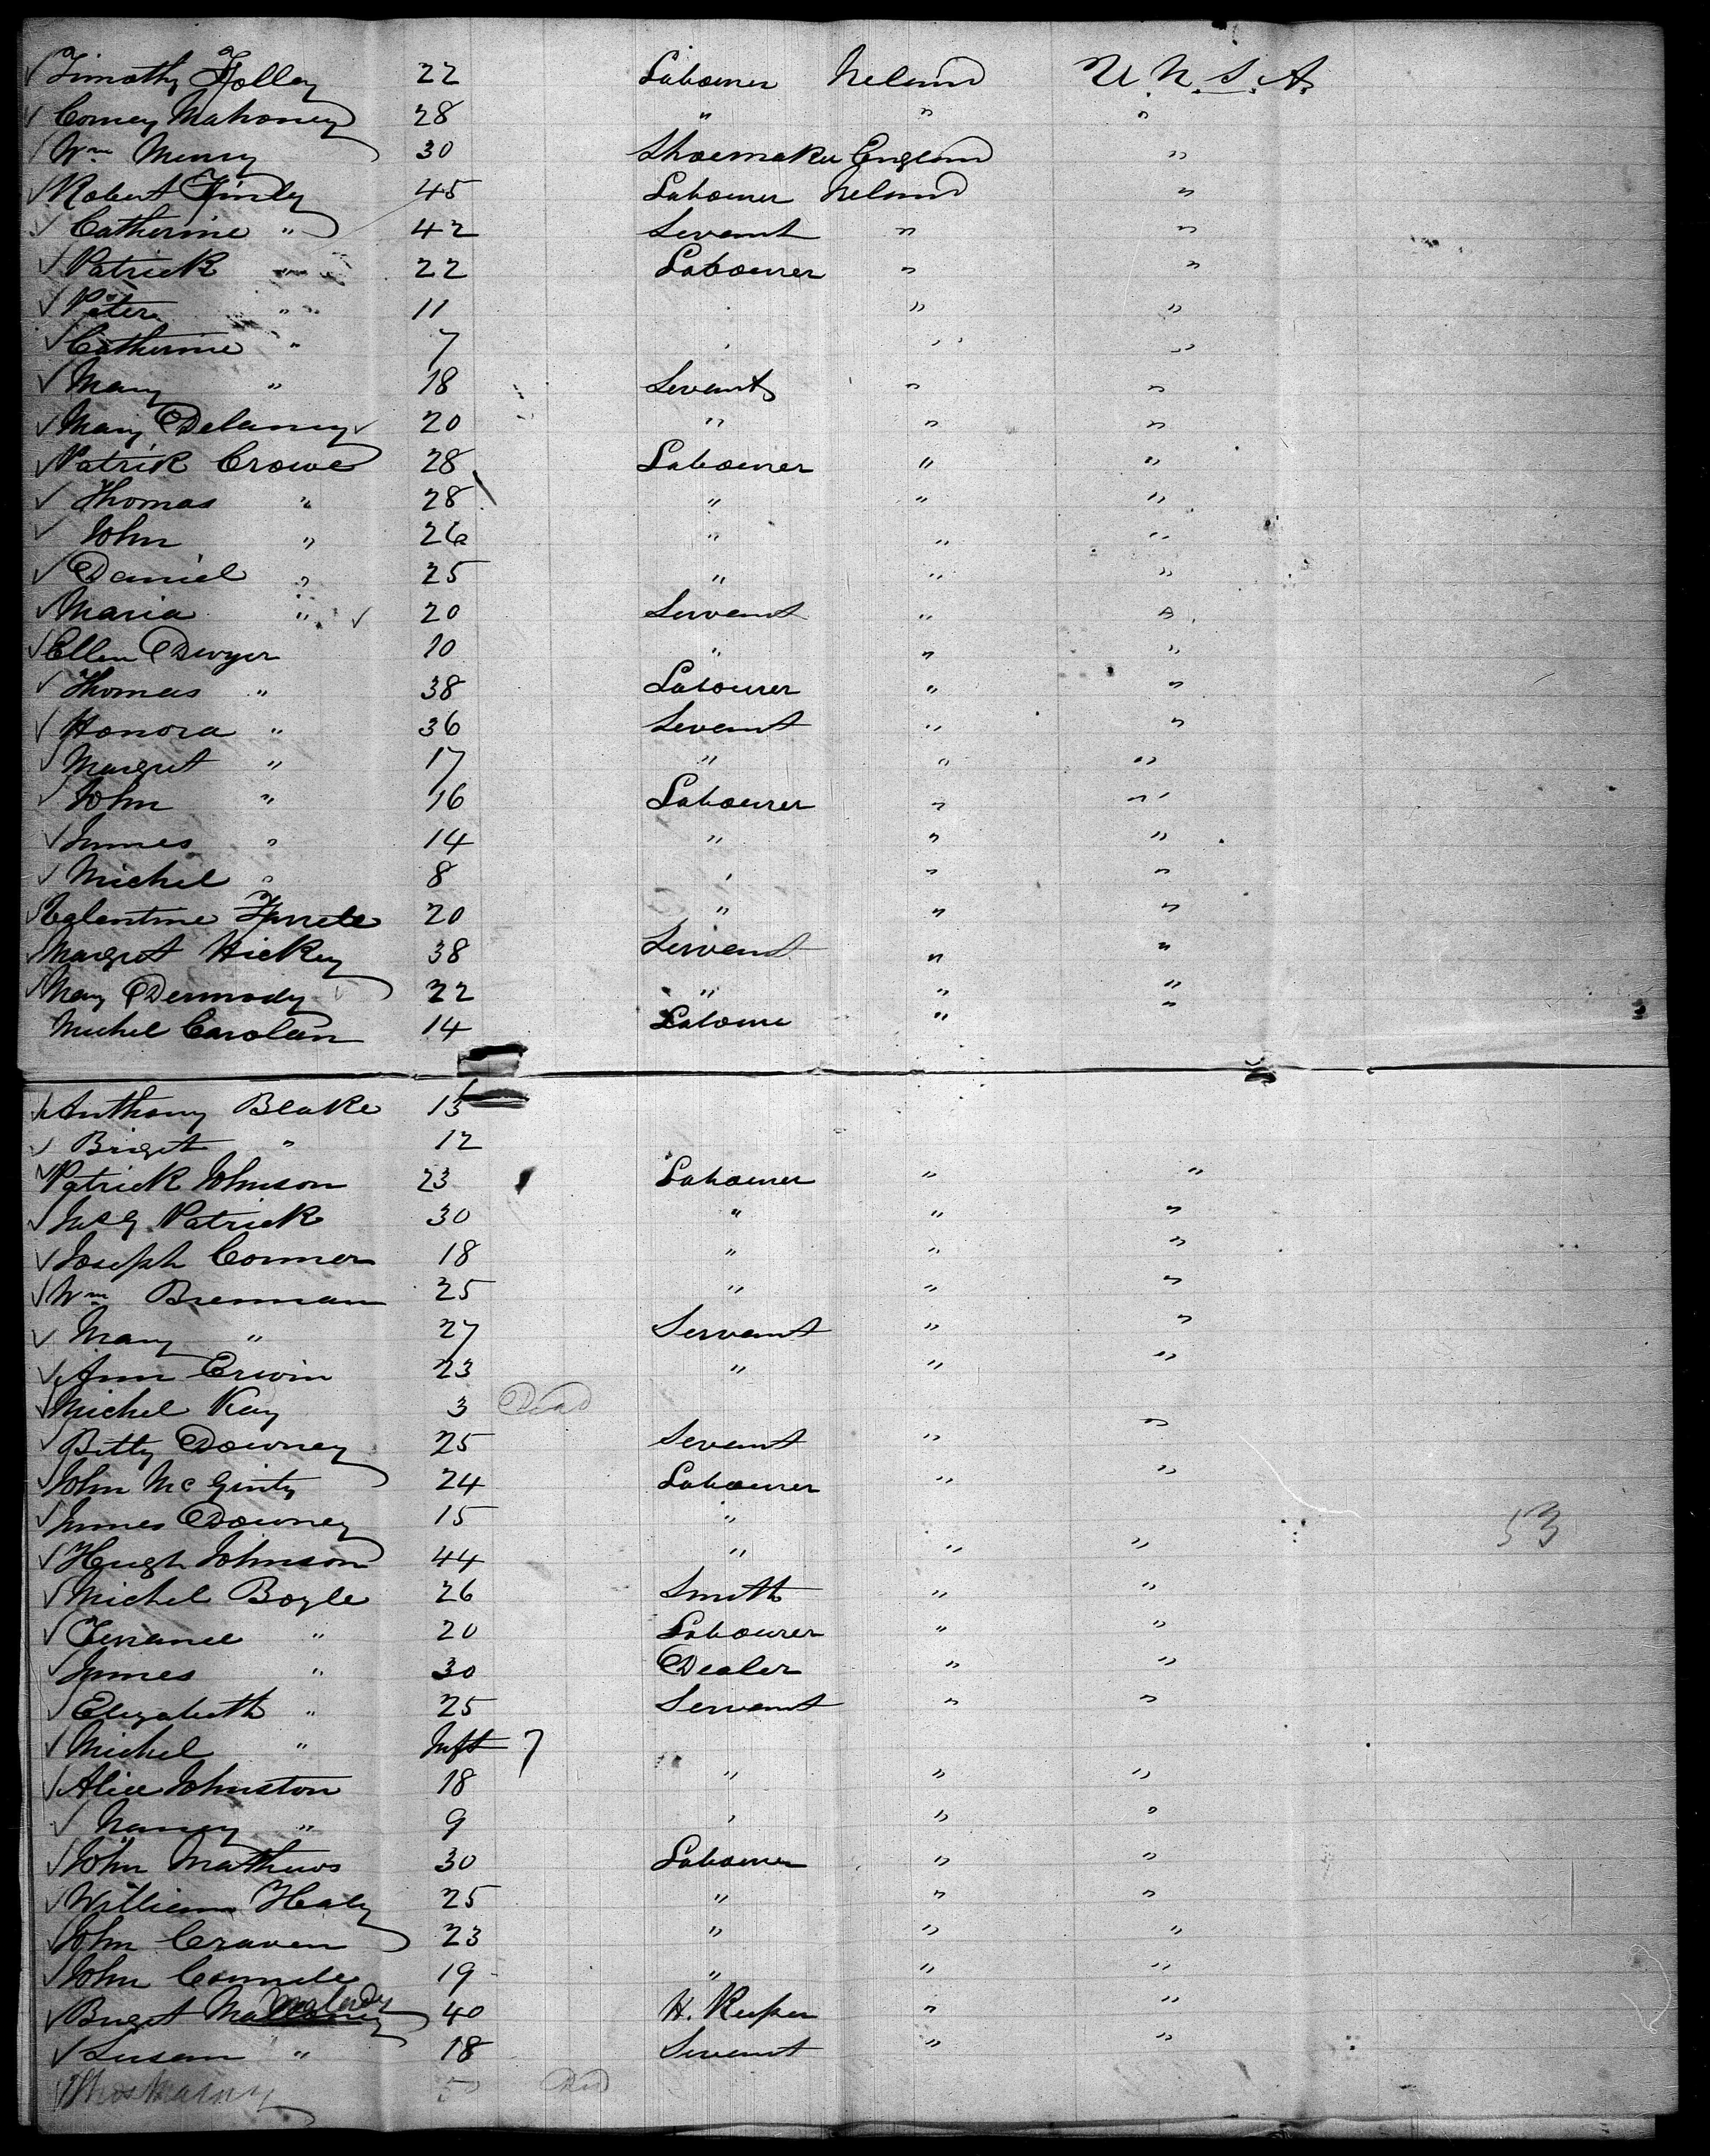 Timothy Holley 22 Labourer Ireland U. N. S. A.
Corney Mahoney 28 " " "
Wm Menry 30 Shoemaker England "
Robert Finley 45 Labourer Ireland "
Catherine " 42 Servant " "
Patrick " 22 Labourer " "
Peter " 11 " "
Catherine " 7 " " "
Mary " 18 Servant " "
Mary Delaney 20 " " "
Patrick Crowe 28 Labourer " "
Thomas " 28 " " "
John " 26 " " "
Daniel " 25 " " "
Maria " 20 Servant " "
Ellen Dwyer 10 " " "
Thomas " 38 Labourer " "
Honora " 36 Servant " "
Margret " 17 " " "
John " 16 Labourer " "
James " 14 " " "
Michel " 8 " " "
20 " " "
Margret Hickey 38 Servant " "
Mary Dermody 22 " " "
Michel Carolan 14 Laboure " "
Anthony Blake 13
Briget " 12
Patrick Johnson 23 Labourer " "
Patrick 30 " " "
Joseph Connor 18 " " "
Wm Brennan 25 " " "
Mary " 27 Servant " "
Ann Erwin 23 " " "
Michel Kay 3 Dead
Betty Downey 25 Servant " "
John McGinty 24 Labourer " "
James Downey 15 "
Hugh Johnson 44 " " "
Michel Boyle 26 Smith " "
Terrance " 20 Labourer " "
James " 30 Dealer " "
Elizabeth " 25 Servant " "
Michel " Inft 7
Alice Johnston 18 " " "
Nancy " 9 " " "
John Mathews 30 Labourer " "
William Healy 25 " " "
John Craven 23 " " "
John 19 " " "
Briget 40 H. Keeper " "
Susan " 18 Servant " "
Thos 5 Ded
53